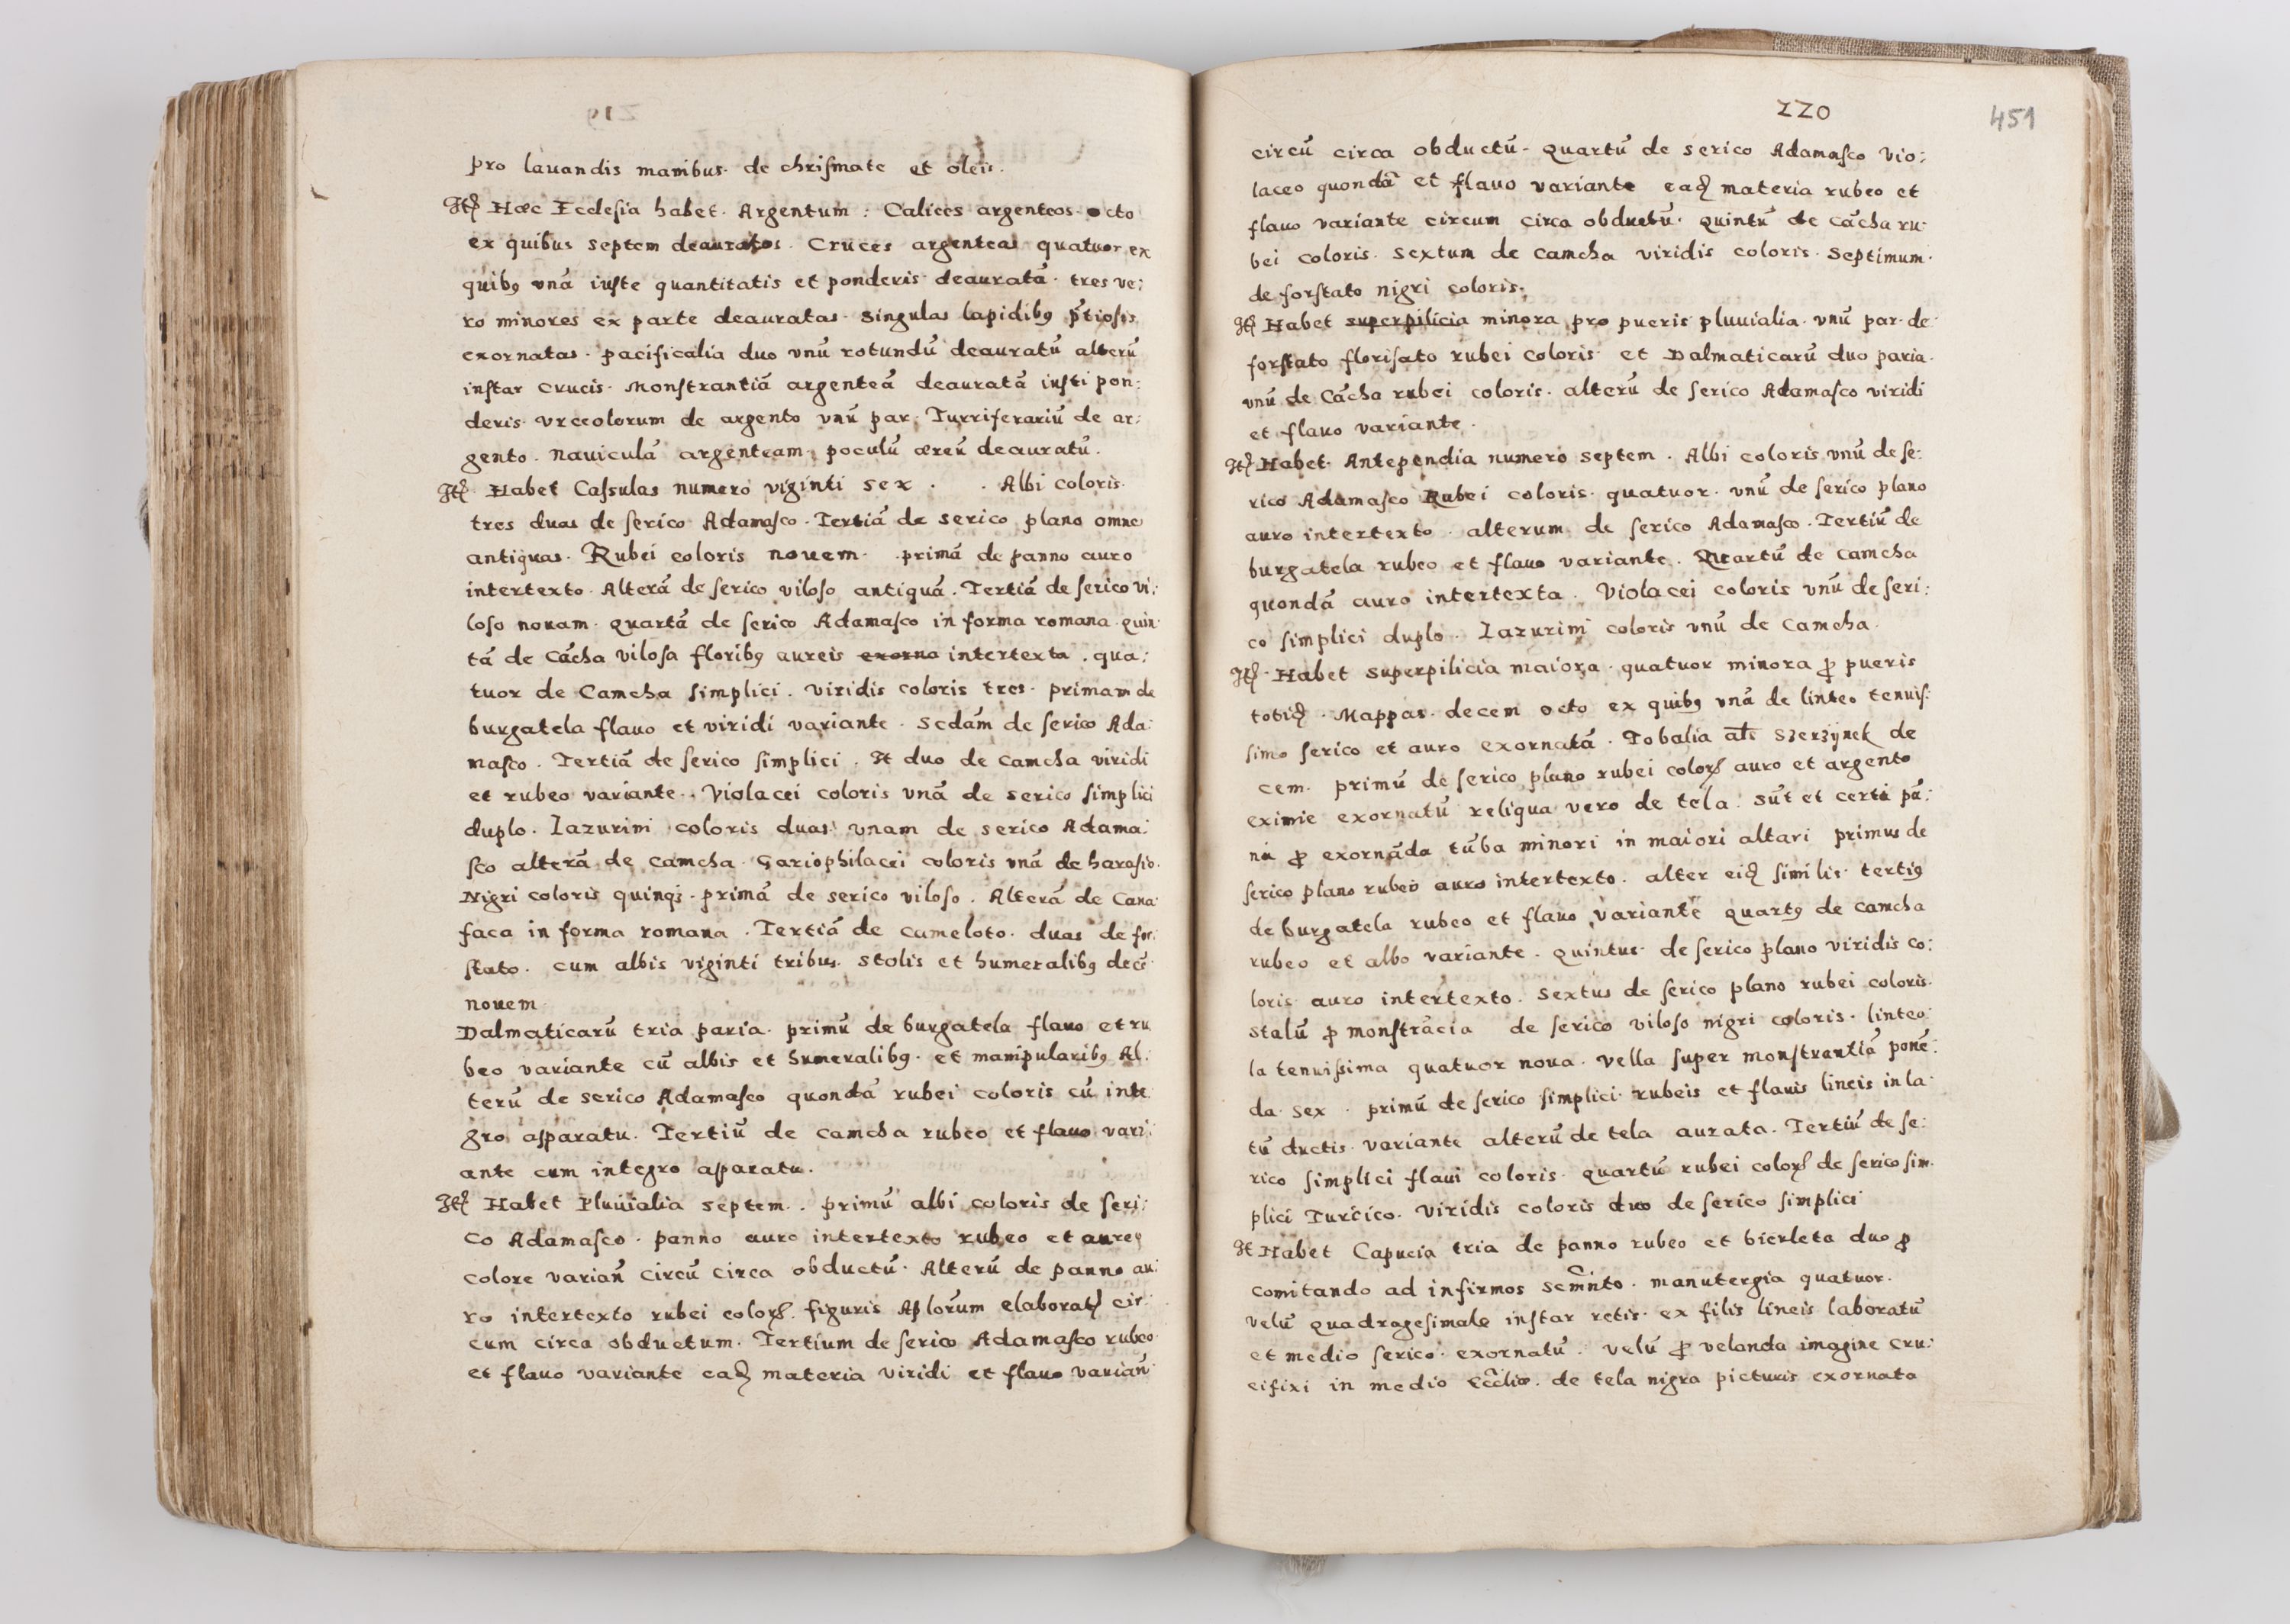 pro lauandis manibus de chrismate et oleis.
Itꝫ Hæc Ecclesia habet. Argentum : Calices argenteos octo
ex quibus septem deauratos. Cruces argenteas quatuor ex
quibꝰ vnā iuste quantitatis et ponderis deauratā. tres ve:
ro minores ex parte deauratas. singulas lapidibꝰ p̄tiosis
exornatas. pacificalia duo vnū rotundū deauratū alterū
instar crucis. Monstrantiā argenteā deauratā iusti pon:
deris. vrceolorum de argento vnū par. Turriferariū de ar:
gento. nauiculā argenteam. poculū æreū deauratū.
Itꝫ. Habet Cassulas numero viginti sex . . Albi coloris.
tres duas de serico Adamasco. Tertiā de serico plano omne
antiquas. Rubei coloris nouem. primā de panno auro
intertexto. Alterā de serico viloso antiquā. Tertiā de serico vi:
loso nouam. quartā de serico Adamasco in forma romana quin
tā de Cācha vilosa floribꝰ aureis exorna intertexta. qua:
tuor de Camcha simplici. viridis coloris tres. primam de
burgatela flauo et viridi variante. Sedām de serico Ada:
masco. Tertiā de serico simplici. It duo de camcha viridi
et rubeo variante. Violacei coloris vnā de serico simplici
duplo. Iazurini coloris duas vnam de serico Adama:
sco alterā de camcha. Gariophilacei coloris vnā de harasio.
Nigri coloris quinqꝫ. primā de serico viloso. Alterā de Cana:
faca in forma romana. Tertiā de cumeloto. duas de for:
stato. cum albis viginti tribus. stolis et humeralibꝰ decē
nouem.
Dalmaticarū tria paria. primū de burgatela flauo et ru
beo variante cū albis et humeralibꝰ. et manipularibꝰ Al:
terū de serico Adamasco quondā rubei coloris cū inte
gro apparatu. Tertiū de camcha rubeo et flauo vari:
ante cum integro aparatu.
Itꝫ Habet Pluuialia septem. primū albi coloris de seri:
co Adamasco. panno auro intertexto rubeo et aureo
colore varian̄ circū circa obductū. Alterū de panno au:
ro intertexto rubei colorꝭ. figuris Aplorum elaboratꝫ cir:
cum circa obductum. Tertium de serico Adamasco rubeo
et flauo variante eadꝫ materia viridi et flauo varian̄
220
451
circū circa obductū. quartū de serico Adamasco vio:
laceo quondā et flauo variante eadꝫ materia rubeo et
flauo variante circum circa obductū. quintū de cācha ru:
bei coloris. sextum de camcha viridis coloris. Septimum
de forstato nigri coloris.
Itꝫ Habet superpilicia minora pro pueris pluuialia. vnū par de
forstato florisato rubei coloris et Dalmaticarū duo paria.
vnū de Cācha rubei coloris. alterū de serico Adamasco viridi
et flauo variante.
Itꝫ Habet. Antependia numero septem. Albi coloris vnū de se:
rico Adamasco Rubei coloris. quatuor. vnū de serico plano
auro intertexto. alterum de serico Adamasco. Tertiū de
burgatela rubeo et flauo variante. Quartū de camcha
quondā auro intertexta. Violacei coloris vnū de seri:
co simplici duplo. Iazurini coloris vnū de camcha.
Itꝫ. Habet superpilicia maiora. quatuor minora ꝓ pueris
totidꝫ. Mappas. decem octo ex quibꝰ vnā de linteo tenuis:
simo serico et auro exornatā. Tobalia al̄s Szerzÿnek de
cem. primū de serico plano rubei colorꝭ auro et argento
eximie exornatū reliqua vero de tela. sūt et certi pā:
ni ꝓ exornāda tūba minori in maiori altari primus de
serico plano rubeo auro intertexto. alter eidꝫ similis. tertiꝰ
de burgatela rubeo et flauo variante quartꝰ de camcha
rubeo et albo variante. quintus de serico plano viridis co:
loris auro intertexto. sextus de serico plano rubei coloris.
stalū ꝓ monstrācia de serico viloso nigri coloris. linteo:
la tenuissima quatuor noua. vella super monstrantiā ponē:
da sex. primū de serico simplici rubeis et flauis lineis in la:
tū ductis. variante alterū de tela aurata. Tertiū de se:
rico simplici flaui coloris. quartū rubei colorꝭ de serico sim.
plici Turcico. viridis coloris duo de serico simplici
It Habet Capucia tria de panno rubeo et bierleta duo ꝓ
comitando ad infirmos sem̄nto. manutergia quatuor.
velū quadragesimale instar retis. ex filis lineis laboratū
et medio serico. exornatū. velū ꝓ velanda imagine cru:
cifixi in medio Eccliæ. de tela nigra picturis exornata